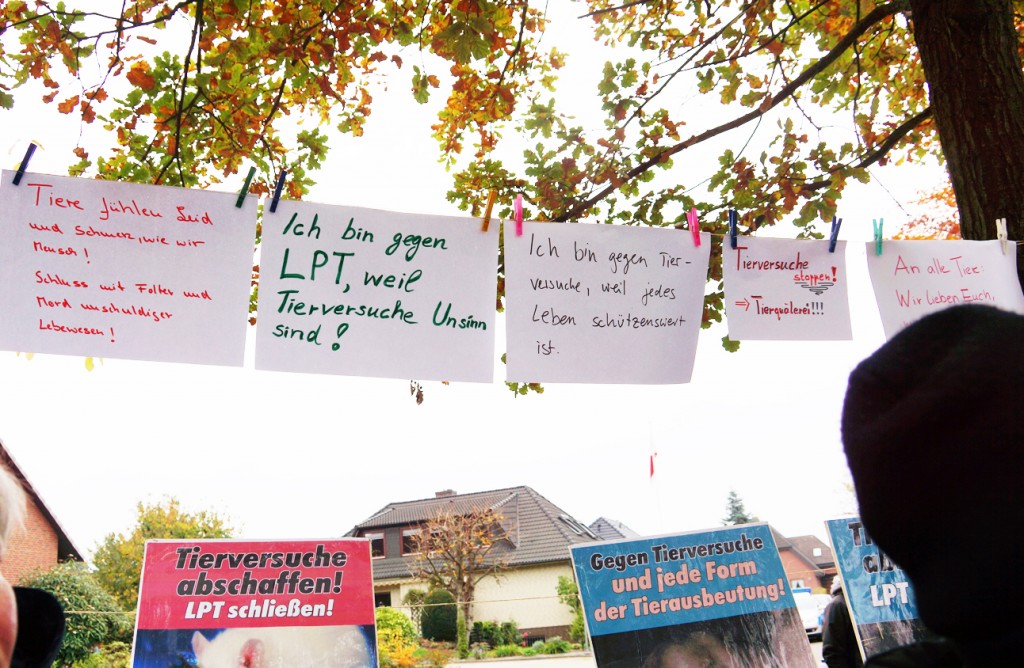 Tiere fühlen Leid
und Schmerz, wie wir
Mensch!
Schluss mit Folter und
Mord unschuldiger
Lebewesen!
Ich bin gegen
LPT, weil
Tierversuche Unsinn
sind!
Ich bin gegen Tier-
versuche, weil jedes
Leben schützenswert
ist.
Tierversuche
stoppen!
⇒ Tierquälerei!!!
An alle Tier
Wir lieben Euch,
Tierversuche
abschaffen!
LPT schließen!
Gegen Tierversuche
und jede Form
der Tierausbeutung!
LPT